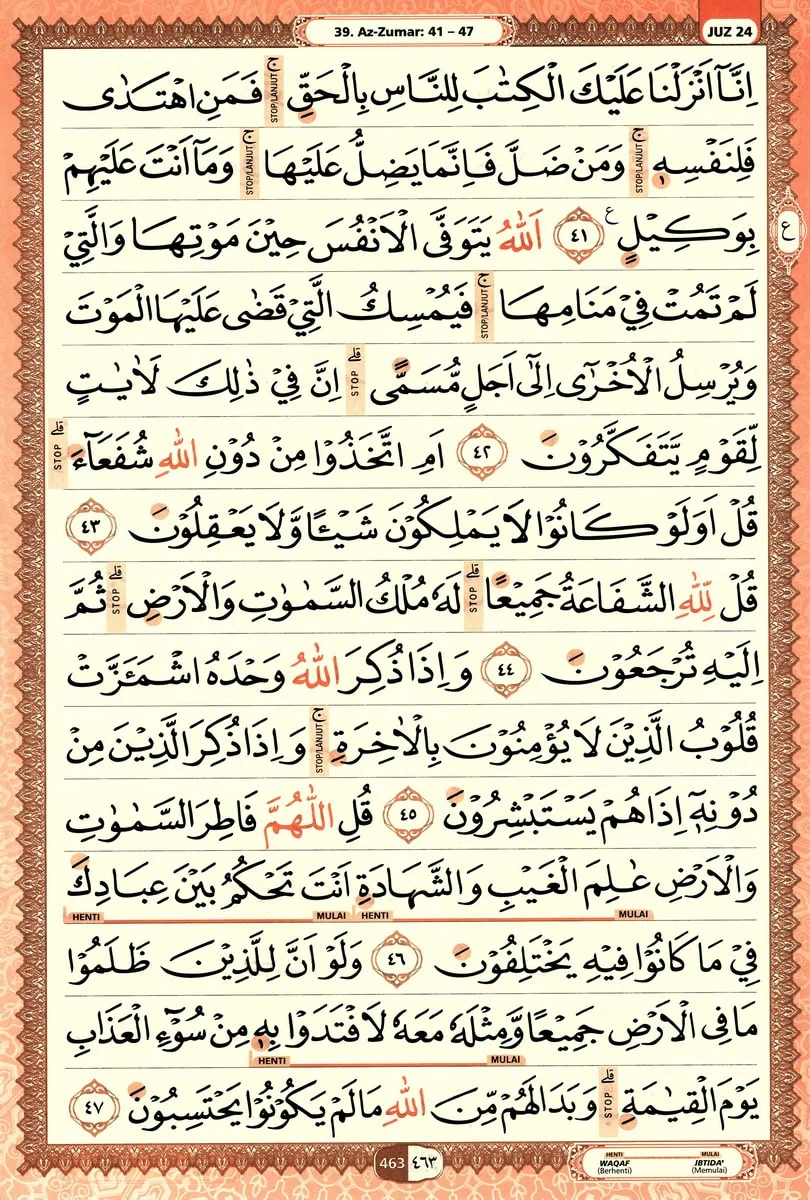 39. Az-Zumar: 41 – 47
JUZ 24
اِنَّآ اَنْزَلْنَا عَلَيْكَ الْكِتٰبَ لِلنَّاسِ بِالْحَقِّۚ STOP/LANJUT فَمَنِ اهْتَدٰى
فَلِنَفْسِهٖۚ STOP/LANJUT وَمَنْ ضَلَّ فَاِنَّمَا يَضِلُّ عَلَيْهَاۚ STOP/LANJUT وَمَآ اَنْتَ عَلَيْهِمْ
بِوَكِيْلٍ ࣖ ٤١ اَللّٰهُ يَتَوَفَّى الْاَنْفُسَ حِيْنَ مَوْتِهَا وَالَّتِيْ
ع
لَمْ تَمُتْ فِيْ مَنَامِهَاۚ STOP/LANJUT فَيُمْسِكُ الَّتِيْ قَضٰى عَلَيْهَا الْمَوْتَ
وَيُرْسِلُ الْاُخْرٰٓى اِلٰٓى اَجَلٍ مُّسَمًّىۗ STOP اِنَّ فِيْ ذٰلِكَ لَاٰيٰتٍ
لِّقَوْمٍ يَّتَفَكَّرُوْنَ ٤٢ اَمِ اتَّخَذُوْا مِنْ دُوْنِ اللّٰهِ شُفَعَاۤءَۗ STOP
قُلْ اَوَلَوْ كَانُوْا لَا يَمْلِكُوْنَ شَيْـًٔا وَّلَا يَعْقِلُوْنَ ٤٣
قُلْ لِّلّٰهِ الشَّفَاعَةُ جَمِيْعًاۗ STOP لَهٗ مُلْكُ السَّمٰوٰتِ وَالْاَرْضِۗ STOP ثُمَّ
اِلَيْهِ تُرْجَعُوْنَ ٤٤ وَاِذَا ذُكِرَ اللّٰهُ وَحْدَهُ اشْمَـَٔزَّتْ
قُلُوْبُ الَّذِيْنَ لَا يُؤْمِنُوْنَ بِالْاٰخِرَةِۚ STOP/LANJUT وَاِذَا ذُكِرَ الَّذِيْنَ مِنْ
دُوْنِهٖٓ اِذَا هُمْ يَسْتَبْشِرُوْنَ ٤٥ قُلِ اللّٰهُمَّ فَاطِرَ السَّمٰوٰتِ
وَالْاَرْضِ عٰلِمَ الْغَيْبِ وَالشَّهَادَةِ اَنْتَ تَحْكُمُ بَيْنَ عِبَادِكَ
MULAI HENTI MULAI HENTI
فِيْ مَا كَانُوْا فِيْهِ يَخْتَلِفُوْنَ ٤٦ وَلَوْ اَنَّ لِلَّذِيْنَ ظَلَمُوْا
مَا فِى الْاَرْضِ جَمِيْعًا وَّمِثْلَهٗ مَعَهٗ لَافْتَدَوْا بِهٖ مِنْ سُوْۤءِ الْعَذَابِ
MULAI HENTI
يَوْمَ الْقِيٰمَةِۗ STOP وَبَدَا لَهُمْ مِّنَ اللّٰهِ مَا لَمْ يَكُوْنُوْا يَحْتَسِبُوْنَ ٤٧
463 ٤٦٣
HENTI MULAI
WAQAF IBTIDA'
(Berhenti) (Memulai)